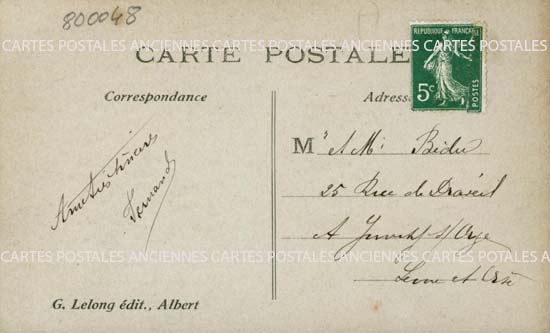 800048
CARTES POSTALES ANCIENNES CARTES POSTALES ANCIENNES CARTES POSTALES
CARTE POSTALE
REPUBLIQUE FRANÇAISE
5c
POSTES
Correspondance
Adresse
Amitiés sincères
Fernand
M. et Me Bidu
25 Rue de Draveil
A Juvisy s/Orge
Seine et Oise
CARTES POSTALES ANCIENNES CARTES POSTALES ANCIENNES CARTES POSTALES
G. Lelong édit., Albert